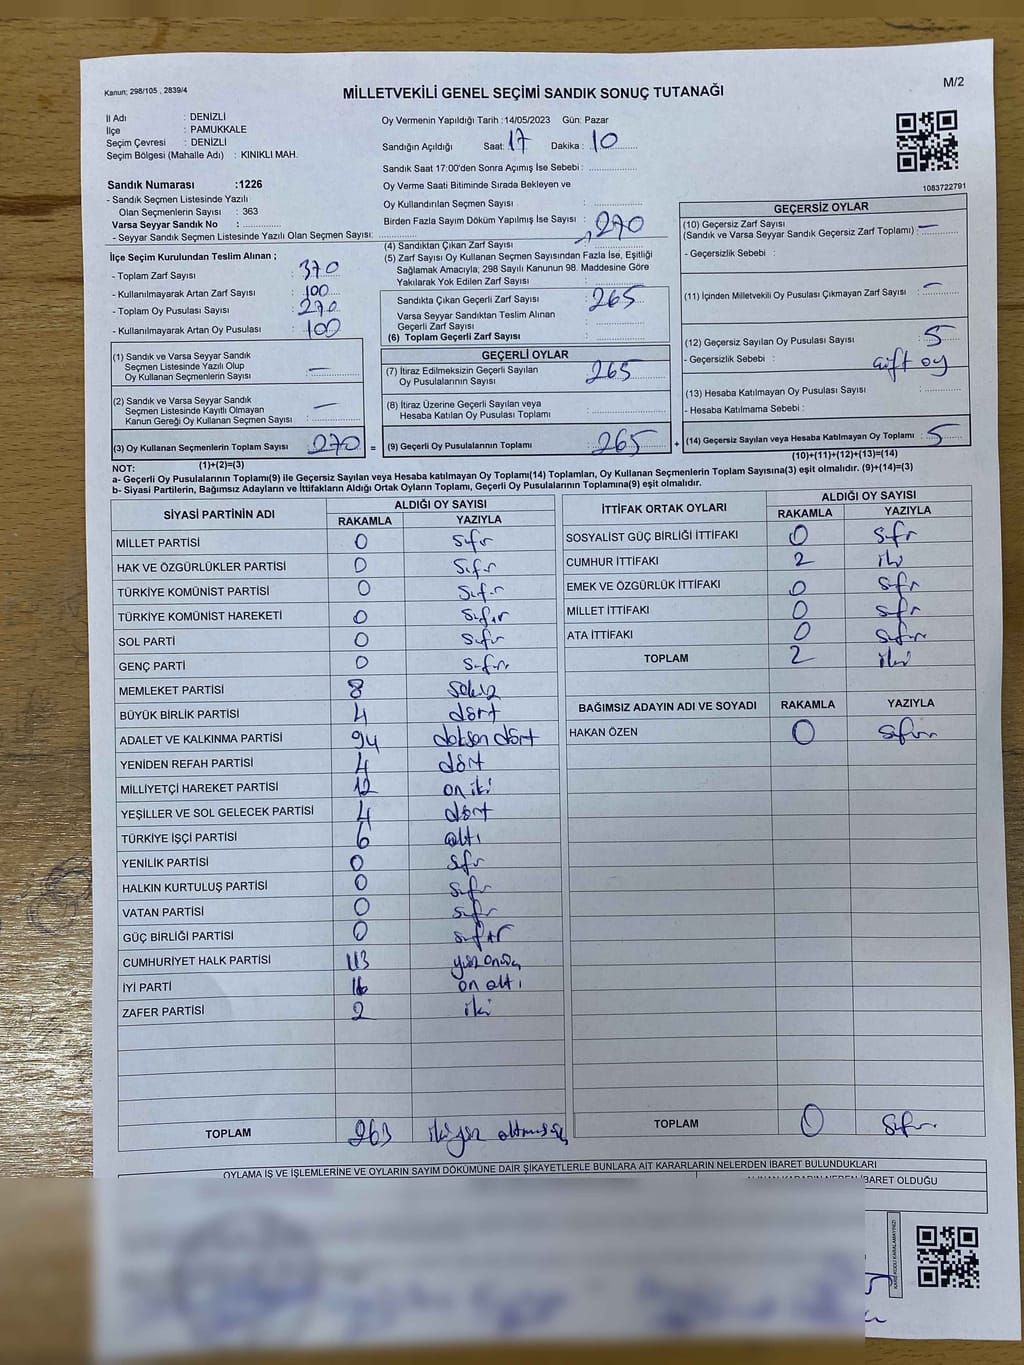 Kanun; 298/105 , 2839/4
M/2
MİLLETVEKİLİ GENEL SEÇİMİ SANDIK SONUÇ TUTANAĞI
İl Adı : DENİZLİ
İlçe : PAMUKKALE
Seçim Çevresi : DENİZLİ
Seçim Bölgesi (Mahalle Adı) : KINIKLI MAH.
Sandık Numarası :1226
- Sandık Seçmen Listesinde Yazılı
Olan Seçmenlerin Sayısı : 363
Varsa Seyyar Sandık No :
- Seyyar Sandık Seçmen Listesinde Yazılı Olan Seçmen Sayısı:
Oy Vermenin Yapıldığı Tarih :14/05/2023 Gün: Pazar
Sandığın Açıldığı Saat: 17 Dakika : 10
Sandık Saat 17:00'den Sonra Açımış İse Sebebi :
Oy Verme Saati Bitiminde Sırada Bekleyen ve
Oy Kullandırılan Seçmen Sayısı :
Birden Fazla Sayım Döküm Yapılmış İse Sayısı :
1083722791
İlçe Seçim Kurulundan Teslim Alınan ;
- Toplam Zarf Sayısı : 370
- Kullanılmayarak Artan Zarf Sayısı : 100
- Toplam Oy Pusulası Sayısı : 270
- Kullanılmayarak Artan Oy Pusulası : 100
(1) Sandık ve Varsa Seyyar Sandık
Seçmen Listesinde Yazılı Olup
Oy Kullanan Seçmenlerin Sayısı : —
(2) Sandık ve Varsa Seyyar Sandık
Seçmen Listesinde Kayıtlı Olmayan
Kanun Gereği Oy Kullanan Seçmen Sayısı : —
(3) Oy Kullanan Seçmenlerin Toplam Sayısı : 270 =
(1)+(2)=(3)
(4) Sandıktan Çıkan Zarf Sayısı : 270
(5) Zarf Sayısı Oy Kullanan Seçmen Sayısından Fazla İse, Eşitliği
Sağlamak Amacıyla; 298 Sayılı Kanunun 98. Maddesine Göre
Yakılarak Yok Edilen Zarf Sayısı :
Sandıkta Çıkan Geçerli Zarf Sayısı : 265
Varsa Seyyar Sandıktan Teslim Alınan
Geçerli Zarf Sayısı :
(6) Toplam Geçerli Zarf Sayısı :
GEÇERLİ OYLAR
(7) İtiraz Edilmeksizin Geçerli Sayılan
Oy Pusulalarının Sayısı : 265
(8) İtiraz Üzerine Geçerli Sayılan veya
Hesaba Katılan Oy Pusulası Toplamı :
(9) Geçerli Oy Pusulalarının Toplamı : 265 +
GEÇERSİZ OYLAR
(10) Geçersiz Zarf Sayısı
(Sandık ve Varsa Seyyar Sandık Geçersiz Zarf Toplamı) : —
- Geçersizlik Sebebi :
(11) İçinden Milletvekili Oy Pusulası Çıkmayan Zarf Sayısı : —
(12) Geçersiz Sayılan Oy Pusulası Sayısı : 5
- Geçersizlik Sebebi : çift oy
(13) Hesaba Katılmayan Oy Pusulası Sayısı :
- Hesaba Katılmama Sebebi :
(14) Geçersiz Sayılan veya Hesaba Katılmayan Oy Toplamı : 5
(10)+(11)+(12)+(13)=(14)
NOT:
a- Geçerli Oy Pusulalarının Toplamı(9) ile Geçersiz Sayılan veya Hesaba katılmayan Oy Toplamı(14) Toplamları, Oy Kullanan Seçmenlerin Toplam Sayısına(3) eşit olmalıdır. (9)+(14)=(3)
b- Siyasi Partilerin, Bağımsız Adayların ve İttifakların Aldığı Ortak Oyların Toplamı, Geçerli Oy Pusulalarının Toplamına(9) eşit olmalıdır.
SİYASİ PARTİNİN ADI ALDIĞI OY SAYISI
RAKAMLA YAZIYLA
MİLLET PARTİSİ 0 Sıfır
HAK VE ÖZGÜRLÜKLER PARTİSİ 0 Sıfır
TÜRKİYE KOMÜNİST PARTİSİ 0 Sıfır
TÜRKİYE KOMÜNİST HAREKETİ 0 Sıfır
SOL PARTİ 0 Sıfır
GENÇ PARTİ 0 Sıfır
MEMLEKET PARTİSİ 8 Sekiz
BÜYÜK BİRLİK PARTİSİ 4 dört
ADALET VE KALKINMA PARTİSİ 94 doksan dört
YENİDEN REFAH PARTİSİ 4 dört
MİLLİYETÇİ HAREKET PARTİSİ 12 on iki
YEŞİLLER VE SOL GELECEK PARTİSİ 4 dört
TÜRKİYE İŞÇİ PARTİSİ 6 altı
YENİLİK PARTİSİ 0 sıfır
HALKIN KURTULUŞ PARTİSİ 0 sıfır
VATAN PARTİSİ 0 sıfır
GÜÇ BİRLİĞİ PARTİSİ 0 sıfır
CUMHURİYET HALK PARTİSİ 113 yüz onüç
İYİ PARTİ 16 on altı
ZAFER PARTİSİ 2 iki
TOPLAM 263 ikiyüz altmışüç
İTTİFAK ORTAK OYLARI ALDIĞI OY SAYISI
RAKAMLA YAZIYLA
SOSYALİST GÜÇ BİRLİĞİ İTTİFAKI 0 sıfır
CUMHUR İTTİFAKI 2 iki
EMEK VE ÖZGÜRLÜK İTTİFAKI 0 sıfır
MİLLET İTTİFAKI 0 sıfır
ATA İTTİFAKI 0 sıfır
TOPLAM 2 iki
BAĞIMSIZ ADAYIN ADI VE SOYADI RAKAMLA YAZIYLA
HAKAN ÖZEN 0 sıfır
TOPLAM 0 Sıfır
OYLAMA İŞ VE İŞLEMLERİNE VE OYLARIN SAYIM DÖKÜMÜNE DAİR ŞİKAYETLERLE BUNLARA AİT KARARLARIN NELERDEN İBARET BULUNDUKLARI
İBARET OLDUĞU